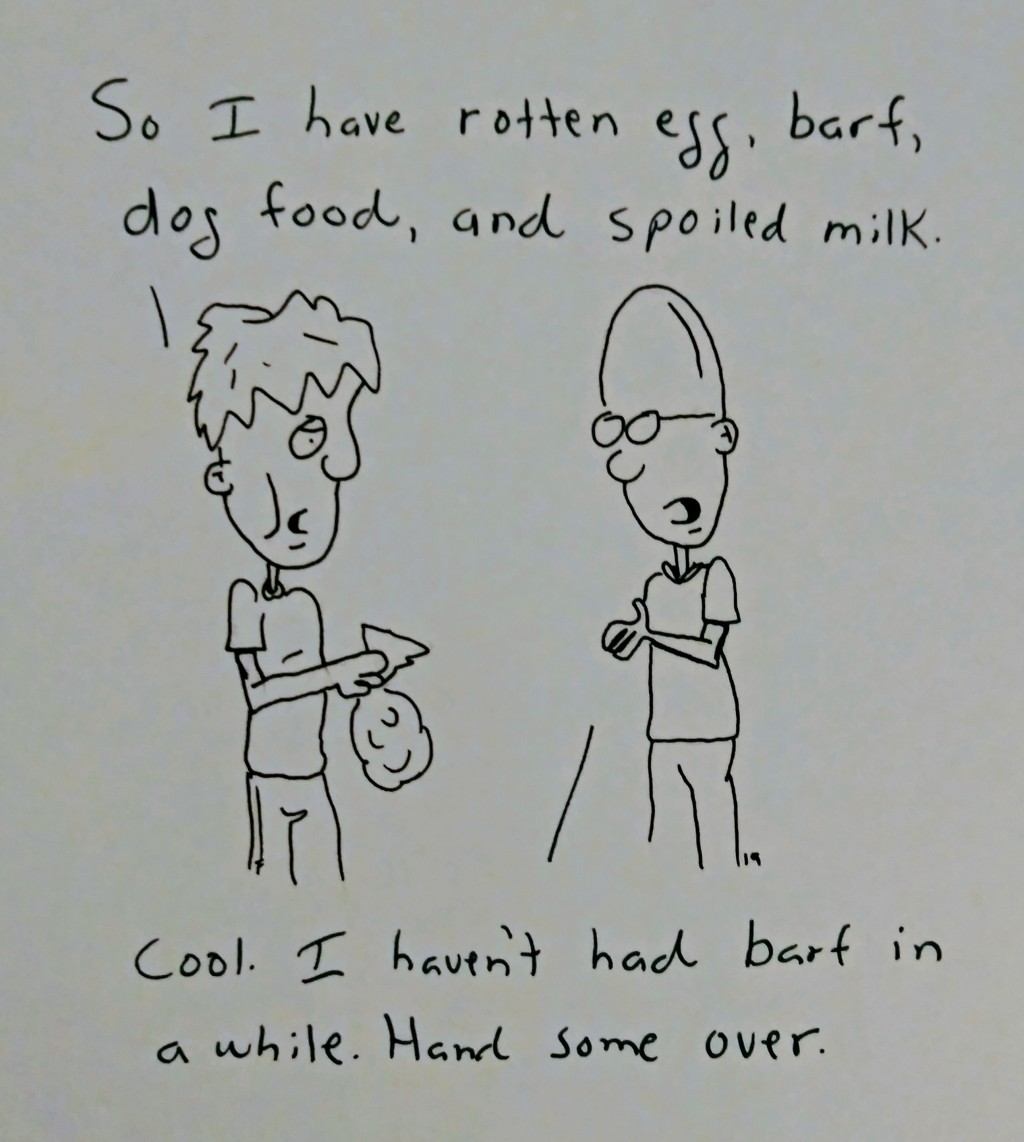 So I have rotten egg, barf,
dog food, and spoiled milk.
19
Cool. I haven't had barf in
a while. Hand some over.